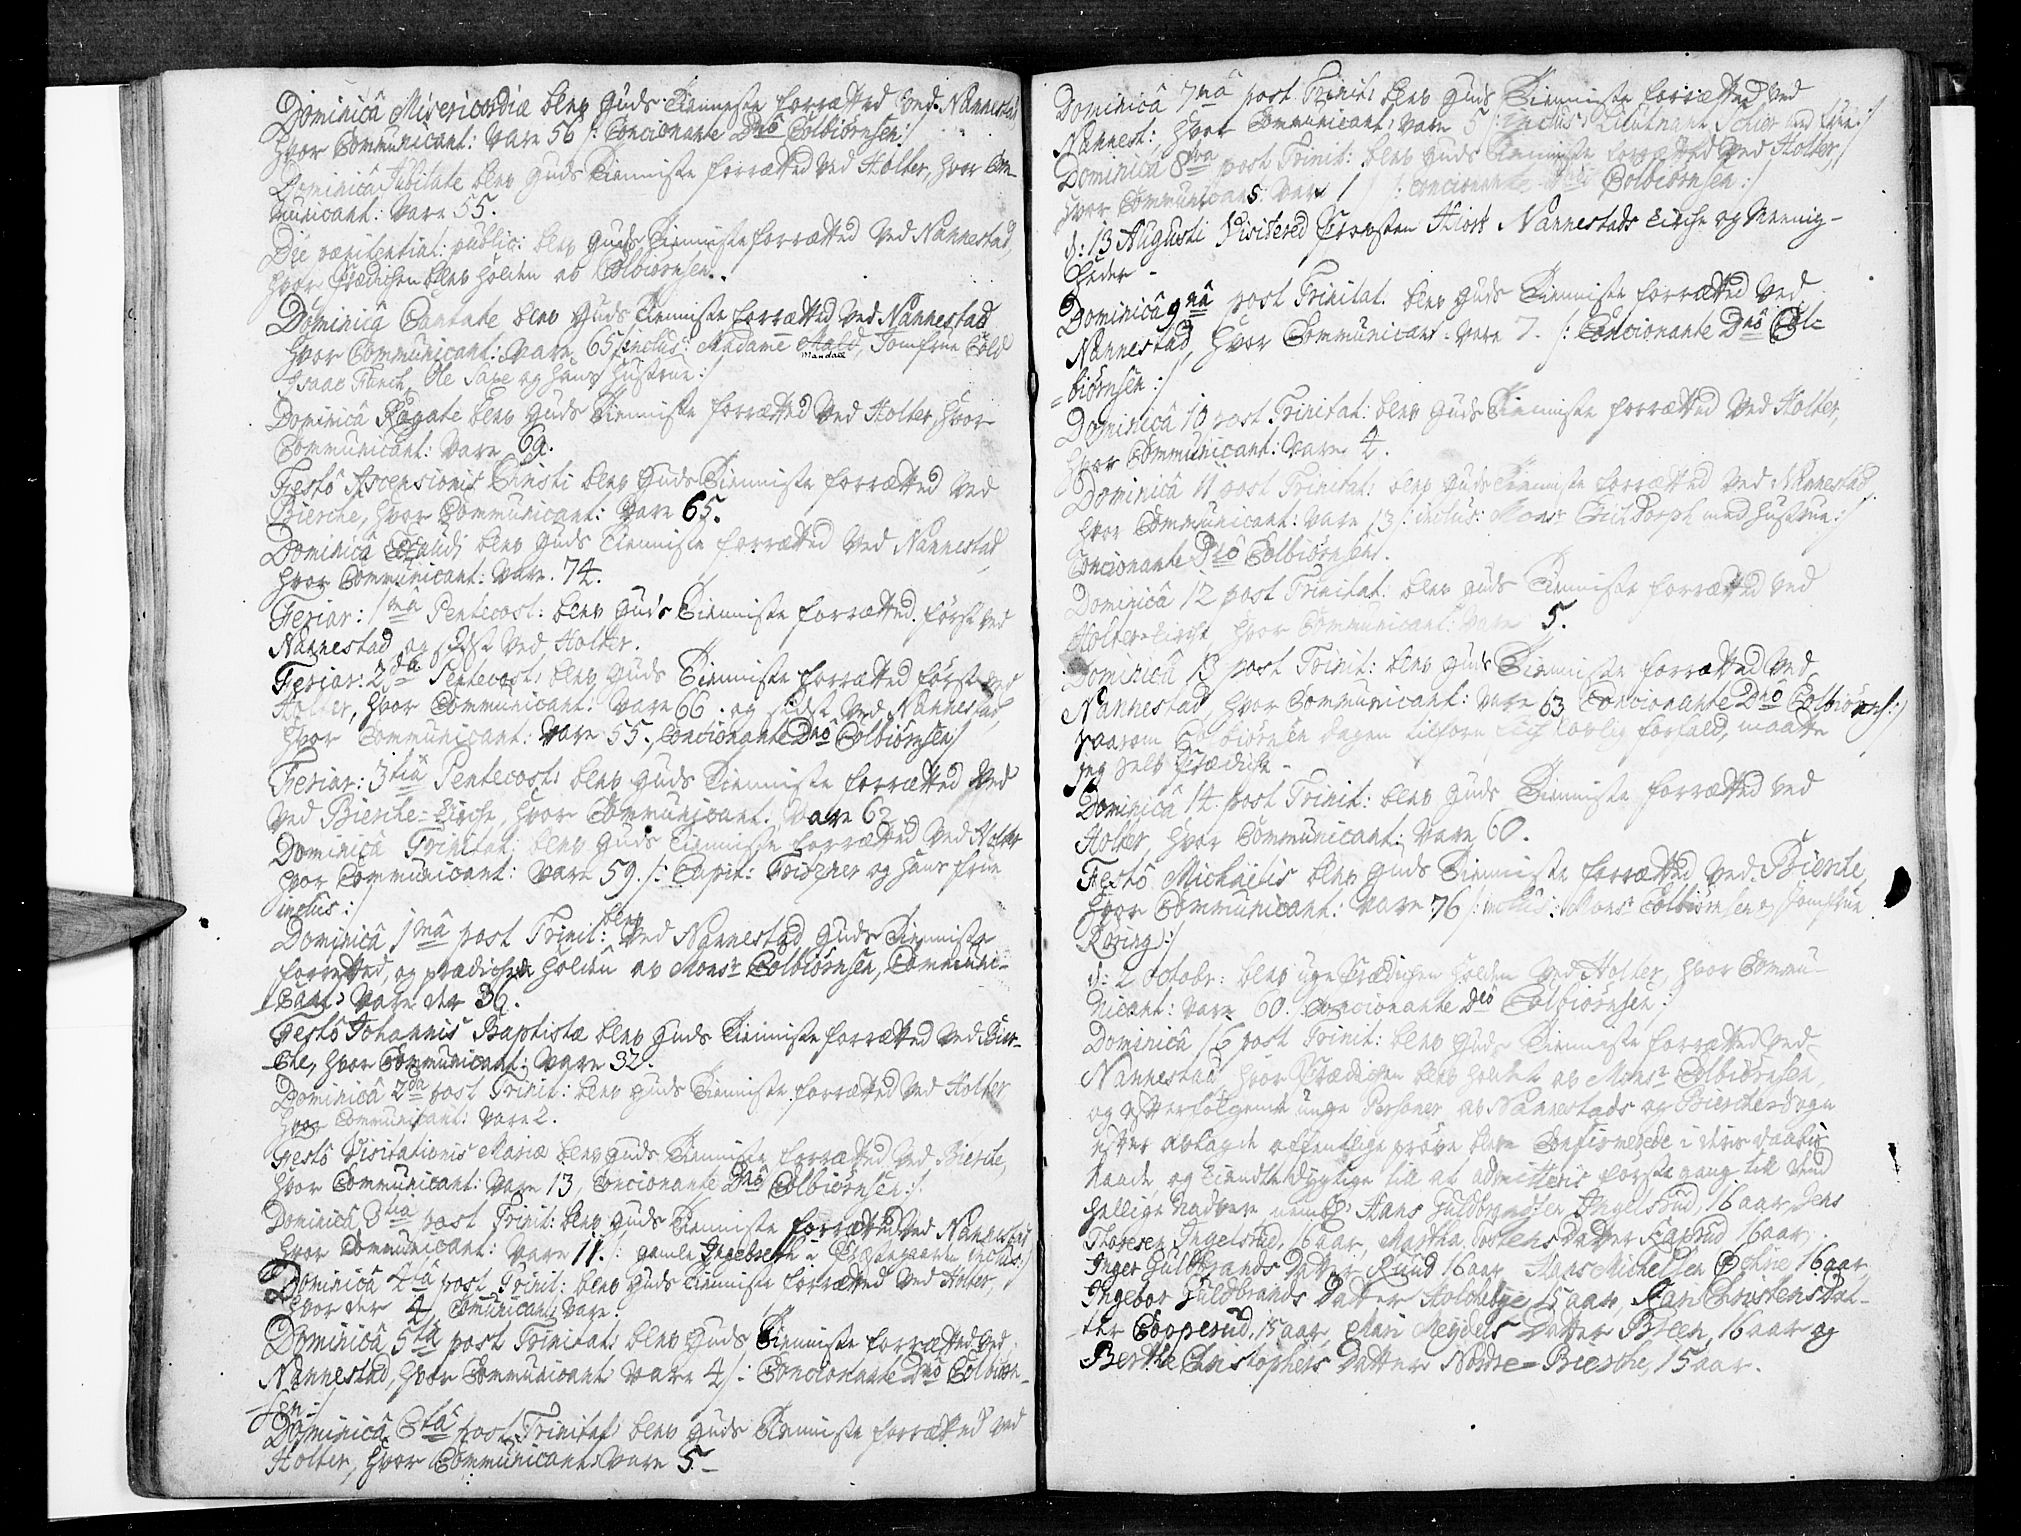 Dominicâ Misericordiæ blev Guds Tienniste forrætted ved Nannestad
hvor Communicant: vare 56 /: Concionante Dnô Colbiørnsen:/
Dominicâ Jubilate blev Guds Tienniste forrætted ved Holter, hvor Com-
municant: vare 55.
Die pænitential: public: blev Guds Tienniste forrætted ved Nannestad,
hvor Prædichen blev holden av Colbiørnsen.
Dominicâ Cantate blev Guds Tienniste forrætted ved Nannestad
hvor Communicant: vare 65 /: inclus: Madame Mandall, Jomfrue Cold
Isaac Flinch, Ole Saxe og hans Hustrue:/
Dominicâ Rogate blev Guds Tienniste forrætted ved Holter, hvor
Communicant: vare 69.
Festô Ascensionis Christi blev Guds Tienniste forrætted ved
Bierche, hvor Communicant: vare 65.
Dominicâ Exaudi blev Guds Tienniste forrætted ved Nannestad
hvor Communicant: vare 74.
Feriar: 1mâ Pentecost: blev Guds Tienniste forrætted først ved
Nannestad og sidst ved Holter.
Feriar: 2dâ Pentecost: blev Guds Tienniste forrætted først ved
Holter, hvor Communicant: vare 66. og sidst ved Nannestad
hvor Communicant: vare 55. Concionante Dnô Colbiørnsen:/
Feriar: 3tiâ Pentecost: blev Guds Tienniste forrætted ved
ved Bierche-Kirche, hvor Communicant: vare 62
Dominicâ Trinitat: blev Guds Tienniste forrætted ved Holter
hvor Communicant: vare 59. /: Capit: Frischer og hans Frue
inclus:/
Dominicâ 1mâ post Trinit: blev ved Nannestad Guds Tienniste
forrætted, og prædichen holden av Monsr Colbiørnsen, Communi-
cant: vare der 36.
Festô Johannis Baptistæ blev Guds Tienniste forrætted ved Bier-
che, hvor Communicant: vare 32.
Dominicâ 2dâ post Trinit: blev Guds Tienniste forrætted ved Holter
hvor Communicant: vare 2.
Festô Visitationis Mariæ blev Guds Tienniste forrætted ved Bierche,
hvor Communicant: vare 13, Concionante Dnô Colbiørnsen:/
Dominicâ 3tia post Trinit: blev Guds Tienniste forrætted ved Nannestad
hvor Communicant: vare 11. /: gamle Ingebreth i Præstegaarden inclus:/
Dominicâ 4tâ post Trinit: blev Guds Tienniste forrætted ved Holter,
hvor der 4 Comunicant: vare.
Dominicâ 5tâ post Trinitat: blev Guds Tienniste forrætted ved
Nannestad, hvor Communicant: vare 4 /: Concionante Dnô Colbiørn-
sen:/
Dominicâ 6tâ post Trinitat: blev Guds Tienniste forrætted ved
Holter, hvor Communicant: vare 5.
Dominicâ 7mâ post Trinit: blev Guds Tienniste forrætted ved
Nannest:, hvor Communicant: vare 5 /: inclus: Lieutnant Schiør
Dominica 8tva post Trinit: blev Guds Tienniste forrætted ved Holter,
hvor Communicans: vare 1 /: concionante Dnô Colbiørnsen:/
d: 13 Augusti Visitered Provsten Hiort Nannestads Kirche og Meenig-
heder
Dominicâ 9nâ post Trinitat. blev Guds Tienniste forrætted ved
Nannestad, hvor Communicant. vare 7. /: Concionante Dnô Col-
biørnsen:/
Dominicâ 10 post Trinitat: blev Guds Tienniste forrætted ved Holter,
hvor Communicant: vare 4.
Dominicâ 11 post Trinitat: blev Guds Tienniste forrætted ved Nannestad
hvor Communicant: vare 13 /: inclus: Monsr med Hustrue:/
Concionante Dnô Colbiørnsen.
Dominicâ 12 post Trinitat: blev Guds Tienniste forrætted ved
Holter-Kirche hvor Communicant: vare 5.
Dominicâ 13 post Trinit: blev Guds Tienniste forrætted ved
Nannestad, hvor Communicant: vare 63 Concionante Dno Colbiørns:/
saasom Colbiørnsen dagen tilforn fich lovlig forfald, maatte
jeg selv Prædiche.
Dominicâ 14 post Trinit: blev Guds Tienniste forrætted ved
Holter, hvor Communicant: vare 60.
Festô Michaëlis blev Guds Tienniste forrætted ved Bierche
hvor Communicant: vare 76 /: inclus: Monsr Colbiørnsen og Jomfrue
Rosing:/
d: 2 Octobr: blev uge Prædichen holden ved Holter, hvor Commu-
nicant: vare 60. Concionante Dnô Colbiørnsen:/
Dominicâ 16 post Trinit: blev Guds Tienniste forrætted ved
Nannestad hvor Prædichen blev holdet av Monsr Colbiørnsen,
og efterfølgende unge Personer av Nannestads og Bierche Sogn
efter avlagde offentlige prøve bleve Confirmerede i deris daabs
Naade, og kiendte dygtige till at admitteris første gang till dend
hellige nadvere nembl: Hans Guldbrandsen Ingelsrud, 16 aar, Jens
Thoresen Ingelsrud, 16 aar, Martha Tostens Datter Kaxrud 16 aar,
Inger Guldbrands Datter Ruud 16 aar Hans Michelsen 16 aar,
Ingebor Guldbrands Datter Holobye 15 aar, Kari Christens Dat-
ter Copperud, 15 aar, Mari Meydels Datter Breen, 16 aar og
Berthe Christophers Datter Nordre-Bierche, 15 aar.